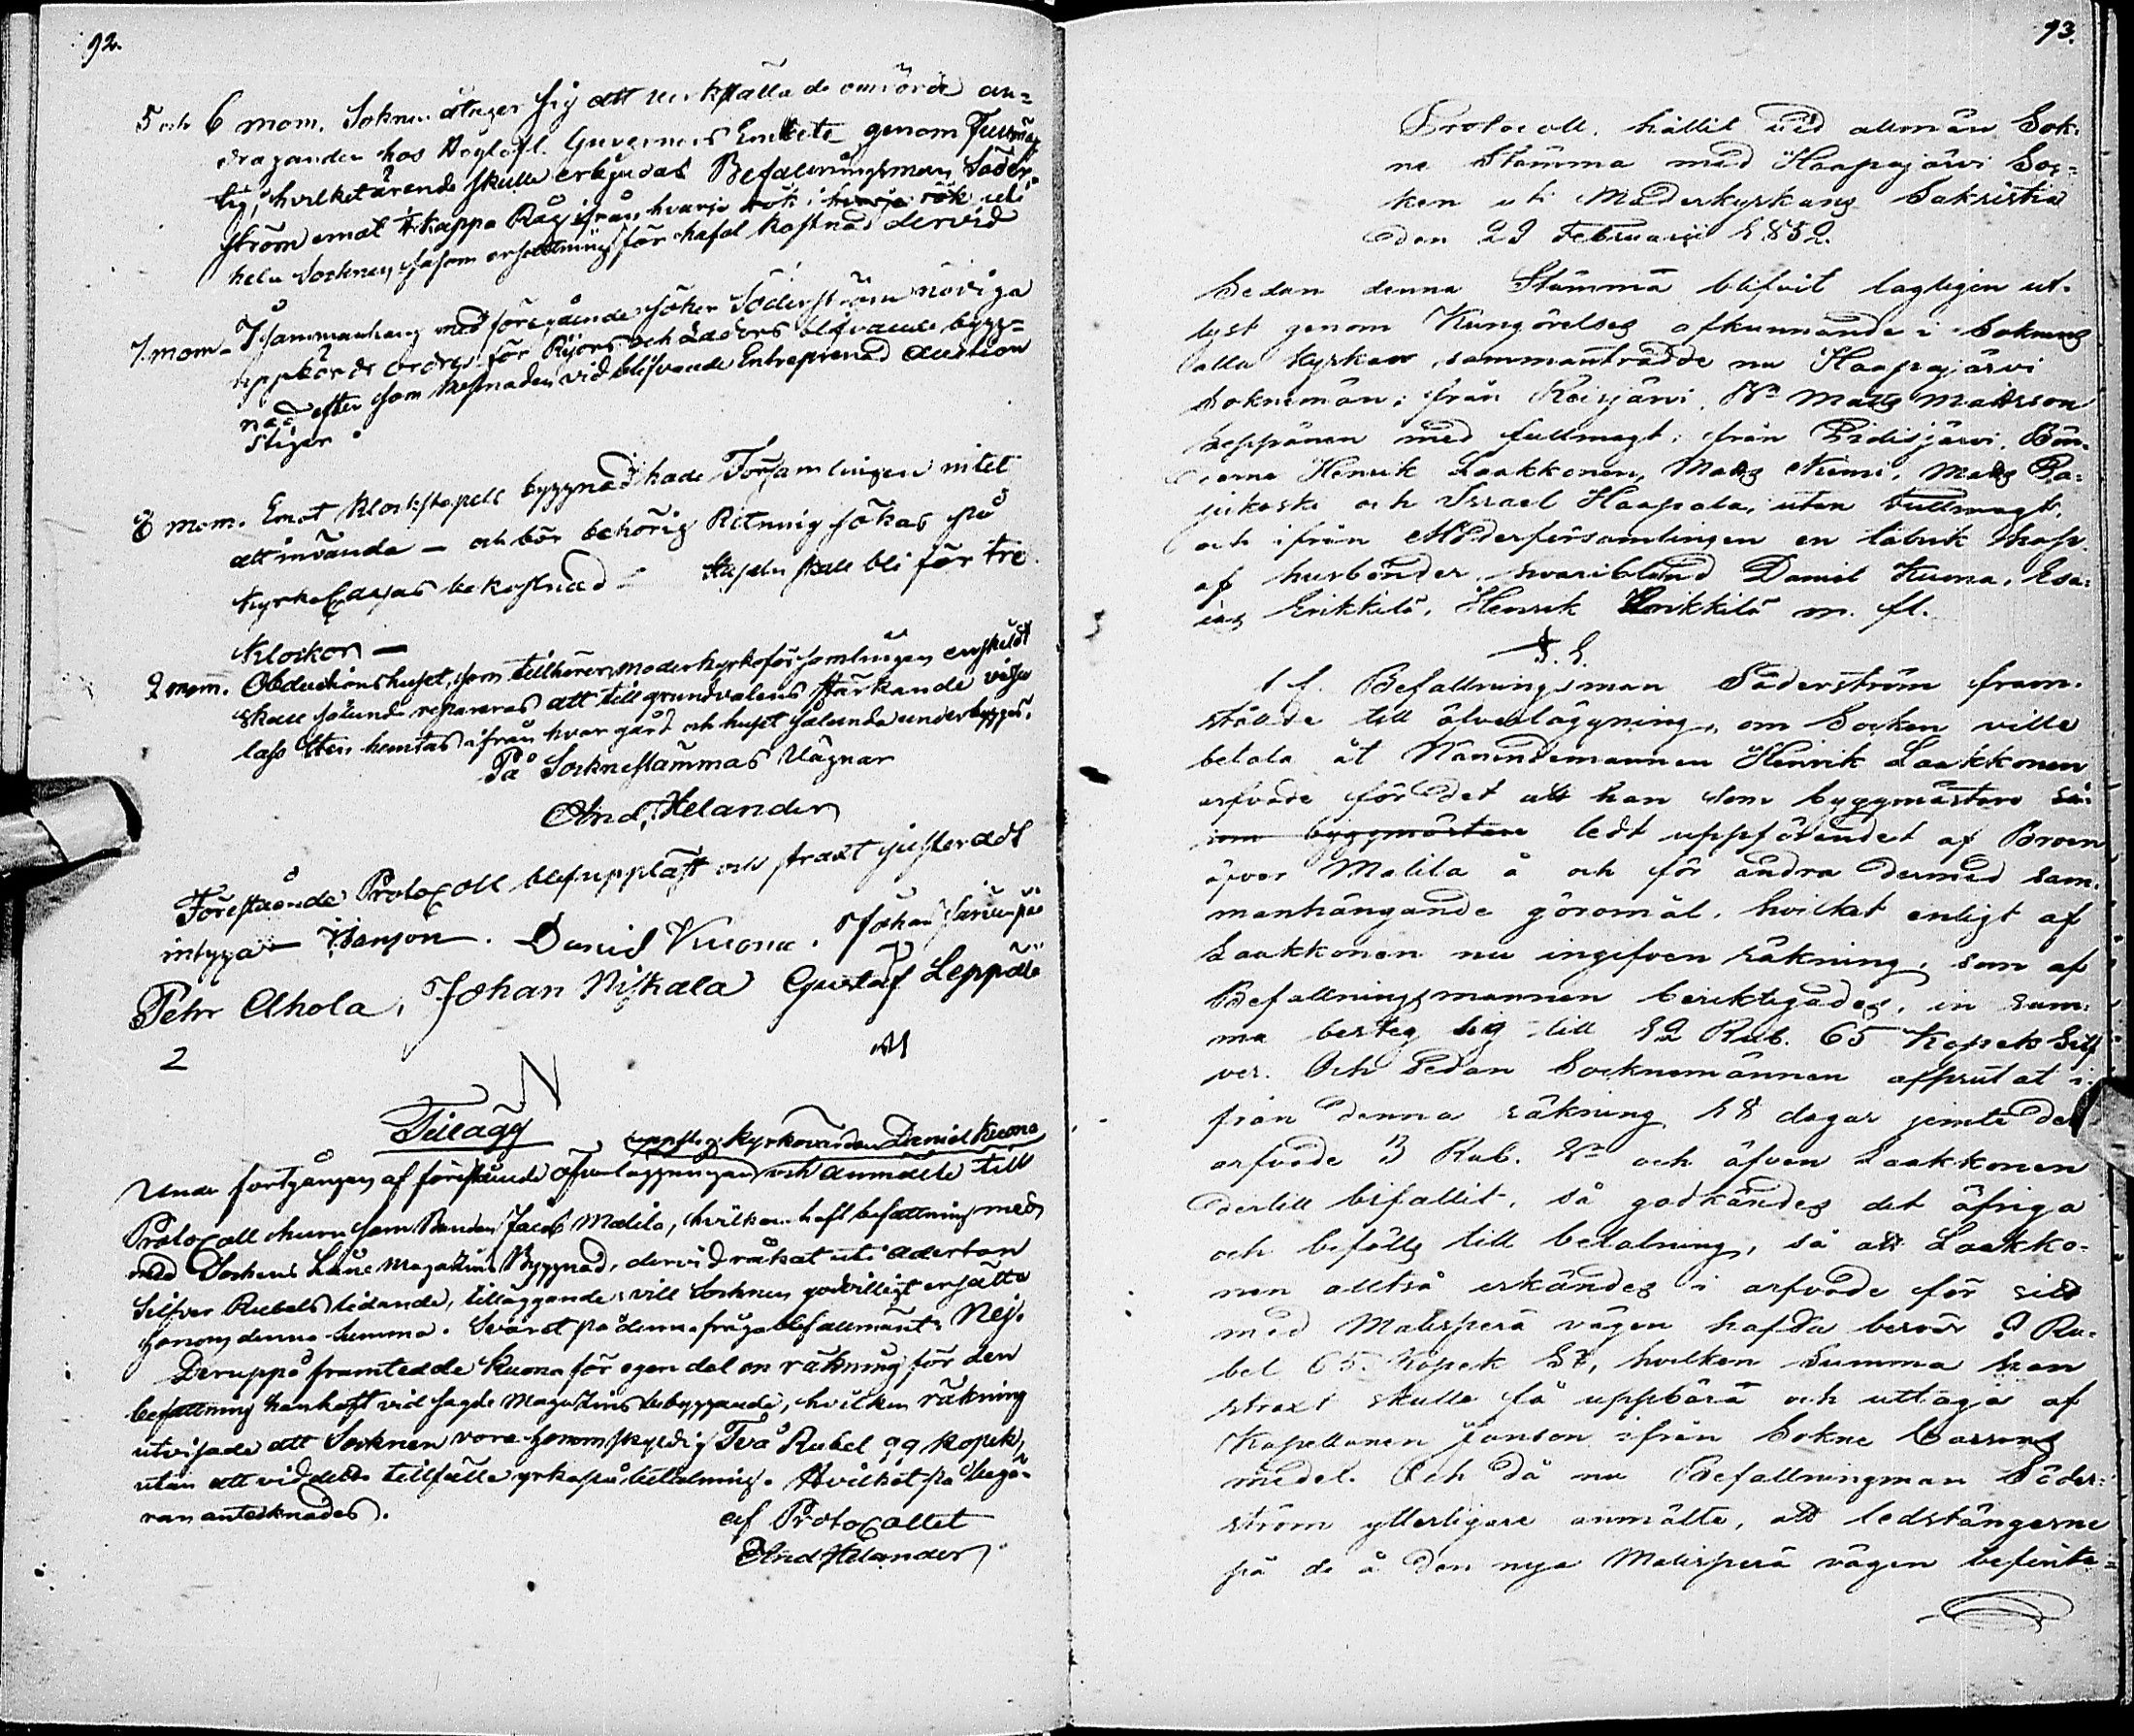 92.
5 och 6 mom. Soknen åtager sig att verkställa de omrörde an=
draganden hos Höglofl. Guverneurs Embete genom Fullmäg
tig, hvilket ärende skulle erbjudas Befallningsman Söder,
ström emot 1/2 kappa Råg ifrån hvarje rök i hvarje rök uti
hela Socknen, såsom ersättning för hafd kostnad dervid
7 mom. I sammanhang med föregående söker Söderström nödiga
uppkörde ordres för Rijors och Ladors blifvande bygg=
nad, efter som kostnaden vid blifvande Entreprenad Auction
stiger.
8 mom. Emot Klockstapels byggnad hade Församlingen intet
att invända — och bör behörig Ritning sökas på
Kyrko Cassas bekostnad — Stapeln skall bli för tre
Klockor —
9 mom. Obductionshuset, som tillhörer moderkyrkoförsamlingen enskildt
skall sålunda repareras att till grundvalens stärkande vissa
lass sten hemtas ifrån hvar gård och huset sålunda underbygges.
På Socknestämmas Vägnar
And. Helander
Förestående Protocoll blef uppläst och straxt justeradt
intyga — Janson. Daniel Kuona. Johan
Petter Ahola, Johan Niskala Gustaf Leppälä
Tillägg
uppsteg Kyrkovärden Daniel Kuona
Under fortgången af förestående öfverläggningar och anmälte till
Protocoll huru som Bonden Jacob Malila, hvilken haft befattning med
med Sockens Låne Magazins Byggnad, dervid råkat uti aderton
Silfver Rubels lidande, tilläggande: vill Socknen godvilligt ersätta
honom denna Summa. Svaret på denna fråga blef allmänt: Nej.
Deruppå framtedde Kuona för egen del en räkning för den
befattning han haft vid sagde Magazins bebyggande, hvilken räkning
utvisade att Socknen vore honom skyldig Två Rubel 99 kopek,
utan att vid detta tillfälle yrka på betalning. Hvilket på begä-
ran antecknades.
af Protocollet
And Helander
93.
Protocoll, hållit vid allmän Sok-
ne Stämma med Haapajärvi Soc=
ken uti Moderkyrkans Sakristia
den 29 Februarii 1852.
Sedan denna Stämma blifvit lagligen ut-
lyst genom Kungörelses afkunnande i Soknens
alla Kyrkor, sammanträdde nu Haapajärvi
Soknemän: från Reisjärvi, Mats Matsson
Leppänen med fullmagt; från Pidisjärvi, Bön-
derna Henrik Laakkonen, Mats Niemi, Mats Pa-
jukoski och Israel Haapala, utan Fullmagt,
och ifrån Moderförsamlingen en talrik hop
af husbönder, hvaribland Daniel Kuona, Esa-
ias Erikkilä, Henrik Erikkilä m. fl.
§. 1.
t. f. Befallningsman Söderström fram-
stälde till öfverläggning, om Socken ville
betala åt Nämndemannen Henrik Laakkonen
arfvode för det att han som byggmästare så-
som byggmästare ledt uppförandet af Broen
öfver Malila å och för andra dermed sam-
manhängande göromål, hvilket enligt af
Laakkonen nu ingifven räkning, som af
Befallningsmannen beriktigades, in sum-
ma besteg sig till 12 Rub. 65 Kopek Silf-
ver. Och Sedan Socknemännen afprutat i-
från denna räkning 18 dagar jemte der
arfvode 3 Rub. Sr och äfven Laakkonen
dertill bifallit, så godkändes det öfriga
och befalls till betalning, så att Laakko-
nen alltså erkändes i arfvode för sitt
med Matisperä vägen hafda besvär 9 Ru-
bel 65 Kopek Sr, hvilken Summa han
straxt skulle få uppbära och uttaga af
Kapellanen Janson ifrån Sokne Cassans
medel. Och då nu Befallningman Söder-
ström ytterligare anmälte, att ledstängerne
på de å den nya Matisperä vägen befinte=